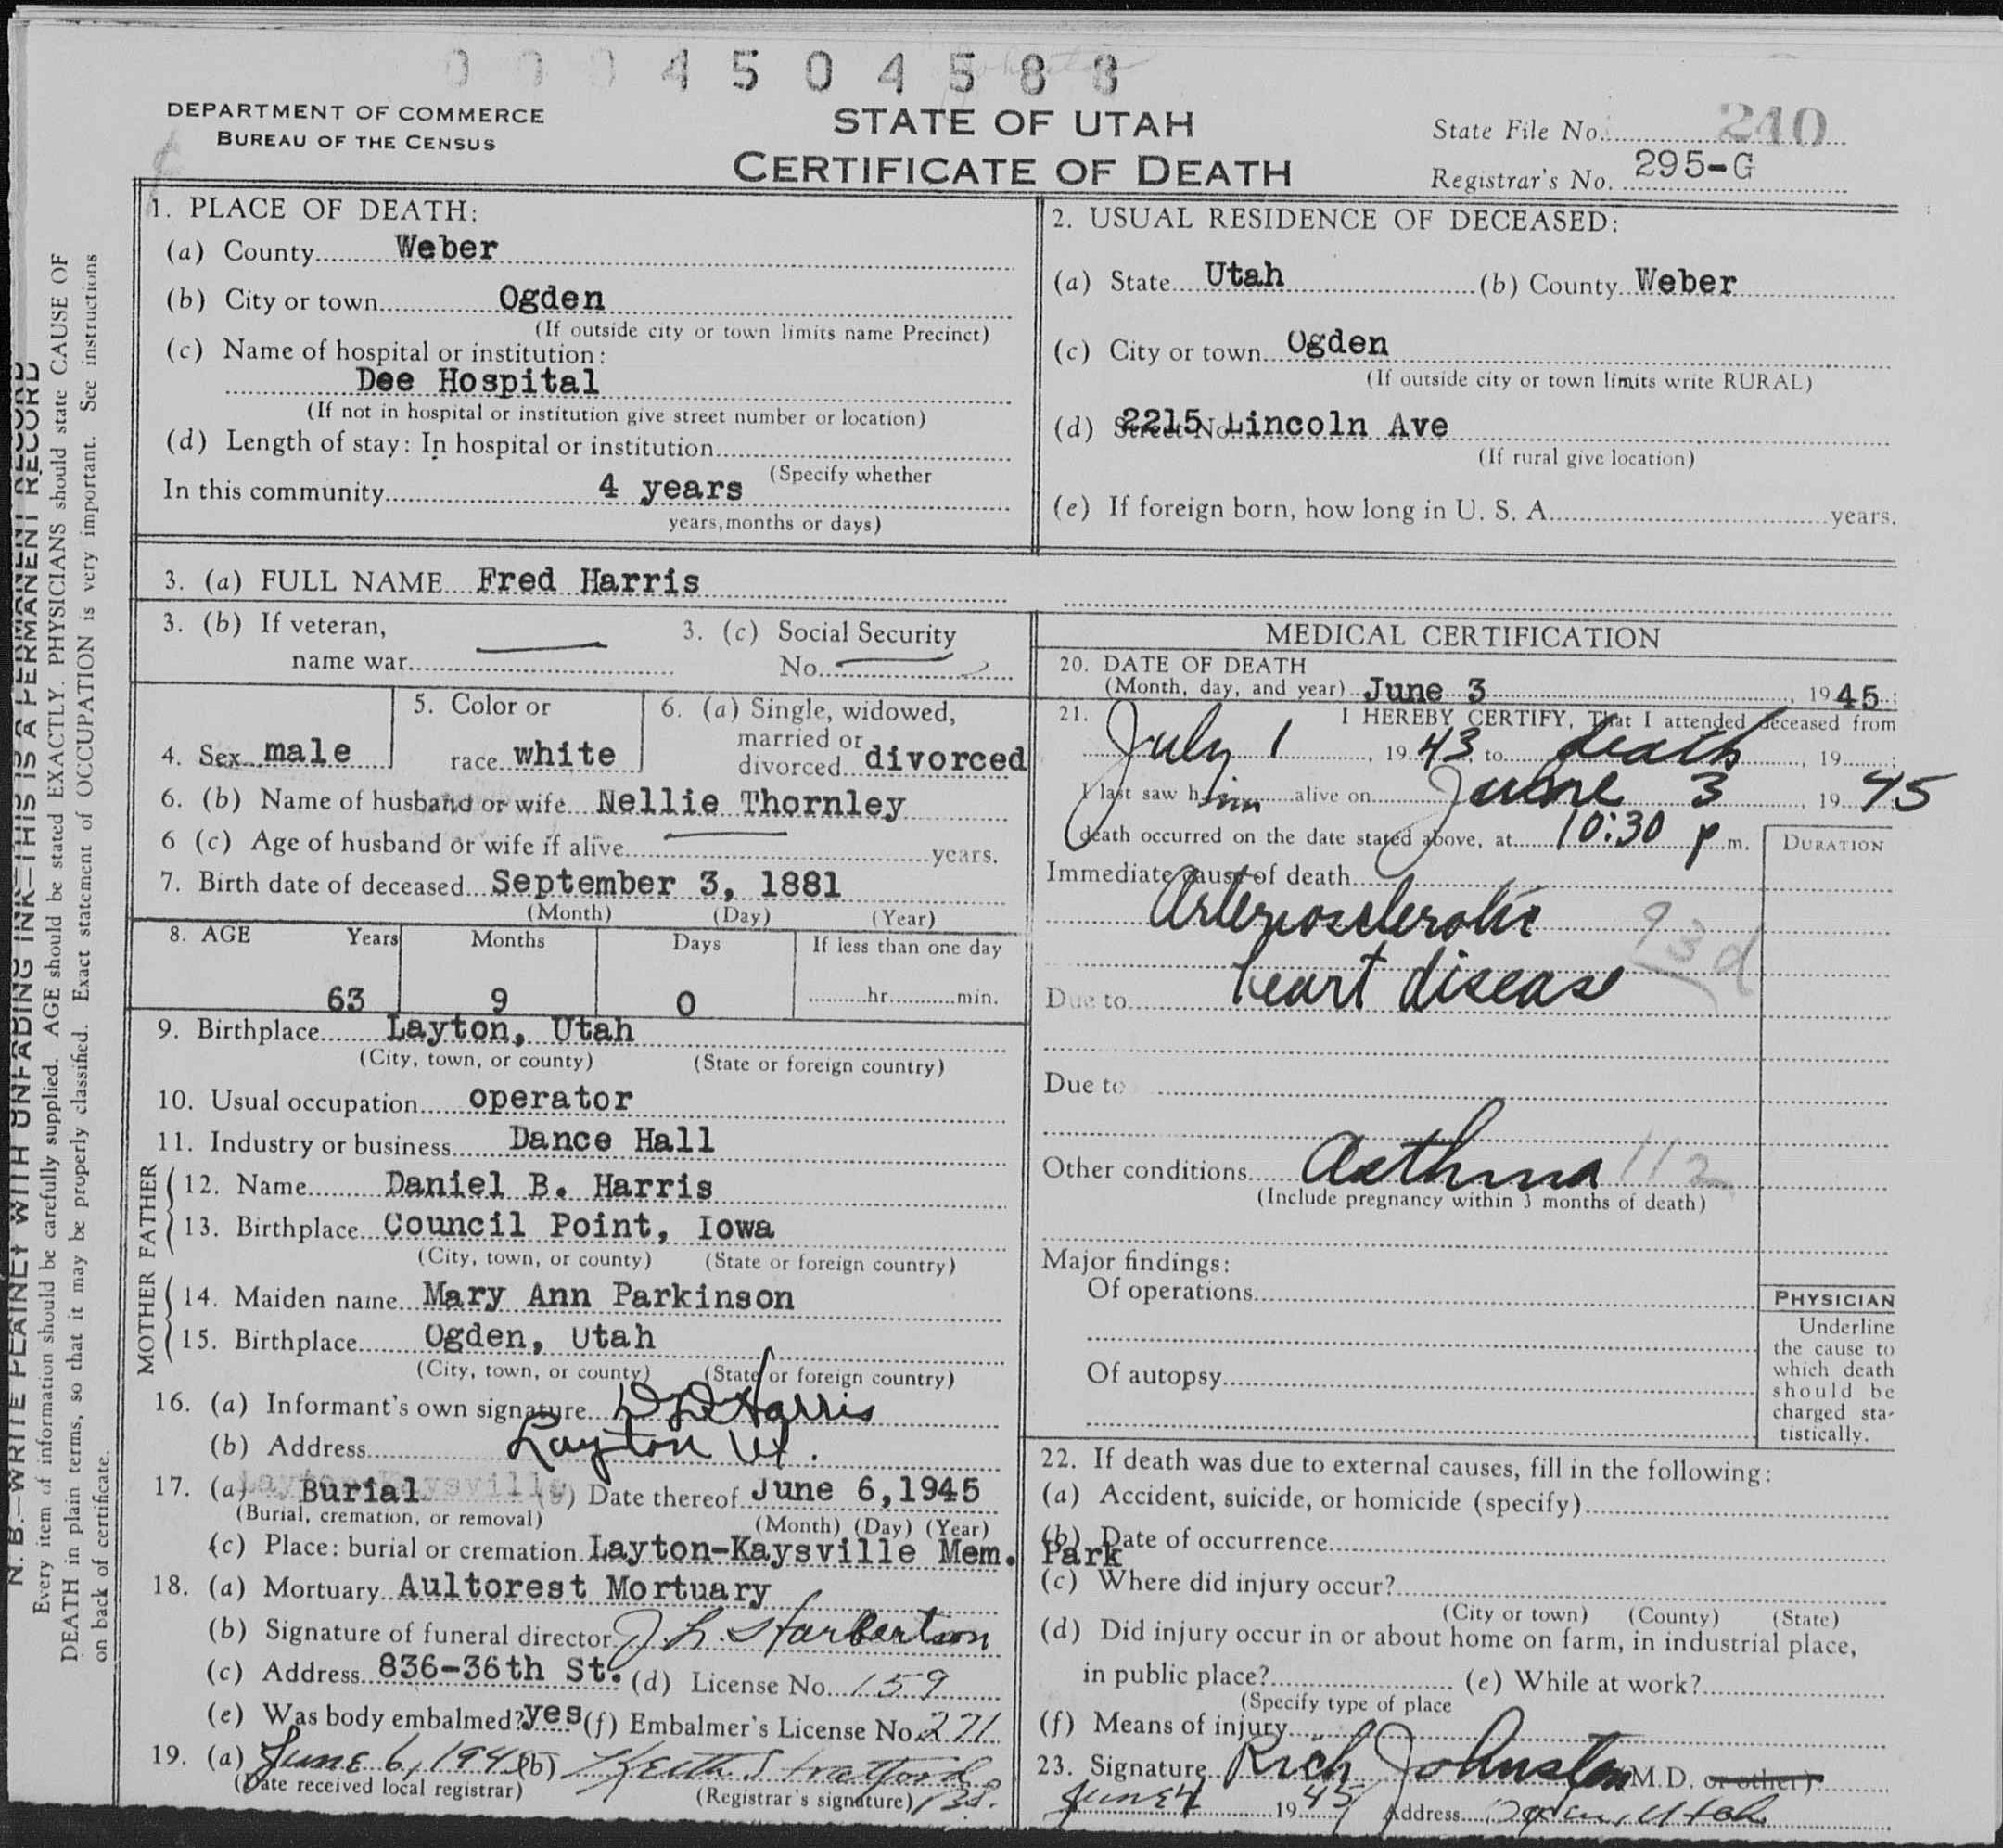 0 0 0 4 5 0 4 5 8 8
DEPARTMENT OF COMMERCE
BUREAU OF THE CENSUS
STATE OF UTAH
CERTIFICATE OF DEATH
State File No. 240
Registrar's No. 295-G
1. PLACE OF DEATH:
(a) County Weber
(b) City or town Ogden
(If outside city or town limits name Precinct)
(c) Name of hospital or institution:
Dee Hospital
(If not in hospital or institution give street number or location)
(d) Length of stay: In hospital or institution
(Specify whether
In this community 4 years
years, months or days)
2. USUAL RESIDENCE OF DECEASED:
(a) State Utah (b) County Weber
(c) City or town Ogden
(If outside city or town limits write RURAL)
(d) Street No. 2215 Lincoln Ave
(If rural give location)
(e) If foreign born, how long in U. S. A. years.
3. (a) FULL NAME Fred Harris
3. (b) If veteran,
name war
3. (c) Social Security
No.
4. Sex male
5. Color or
race white
6. (a) Single, widowed,
married or
divorced divorced
6. (b) Name of husband or wife Nellie Thornley
6 (c) Age of husband or wife if alive years.
7. Birth date of deceased September 3, 1881
(Month) (Day) (Year)
8. AGE Years Months Days If less than one day
63 9 0 hr. min.
9. Birthplace Layton, Utah
(City, town, or county) (State or foreign country)
10. Usual occupation operator
11. Industry or business Dance Hall
FATHER
12. Name Daniel B. Harris
13. Birthplace Council Point, Iowa
(City, town, or county) (State or foreign country)
MOTHER
14. Maiden name Mary Ann Parkinson
15. Birthplace Ogden, Utah
(City, town, or county) (State or foreign country)
16. (a) Informant's own signature D D Harris
(b) Address Layton Ut.
17. (a) Burial (b) Date thereof June 6, 1945
(Burial, cremation, or removal) (Month) (Day) (Year)
(c) Place: burial or cremation Layton-Kaysville Mem. Park
18. (a) Mortuary Aultorest Mortuary
(b) Signature of funeral director J. L. Harbertson
(c) Address 836-36th St. (d) License No. 159
(e) Was body embalmed? yes (f) Embalmer's License No. 271
19. (a) June 6, 1945 (b) Keith Stratford
(Date received local registrar) (Registrar's signature)
MEDICAL CERTIFICATION
20. DATE OF DEATH
(Month, day, and year) June 3, 1945;
21. I HEREBY CERTIFY, That I attended deceased from
July 1, 1943, to death, 19 ;
I last saw him alive on June 3, 1945
death occurred on the date stated above, at 10:30 p.m.
DURATION
Immediate cause of death
Arteriosclerotic 93d
Due to heart disease
Due to
Other conditions Asthma 112
(Include pregnancy within 3 months of death)
Major findings:
Of operations
Of autopsy
PHYSICIAN
Underline
the cause to
which death
should be
charged sta-
tistically.
22. If death was due to external causes, fill in the following:
(a) Accident, suicide, or homicide (specify)
(b) Date of occurrence
(c) Where did injury occur?
(City or town) (County) (State)
(d) Did injury occur in or about home on farm, in industrial place,
in public place? (e) While at work?
(Specify type of place
(f) Means of injury
23. Signature Rich Johnston M.D. or other)
June 4 1945 Address Ogden, Utah
N. B.—WRITE PLAINLY WITH UNFADING INK—THIS IS A PERMANENT RECORD
Every item of information should be carefully supplied. AGE should be stated EXACTLY. PHYSICIANS should state CAUSE OF
DEATH in plain terms, so that it may be properly classified. Exact statement of OCCUPATION is very important. See instructions
on back of certificate.